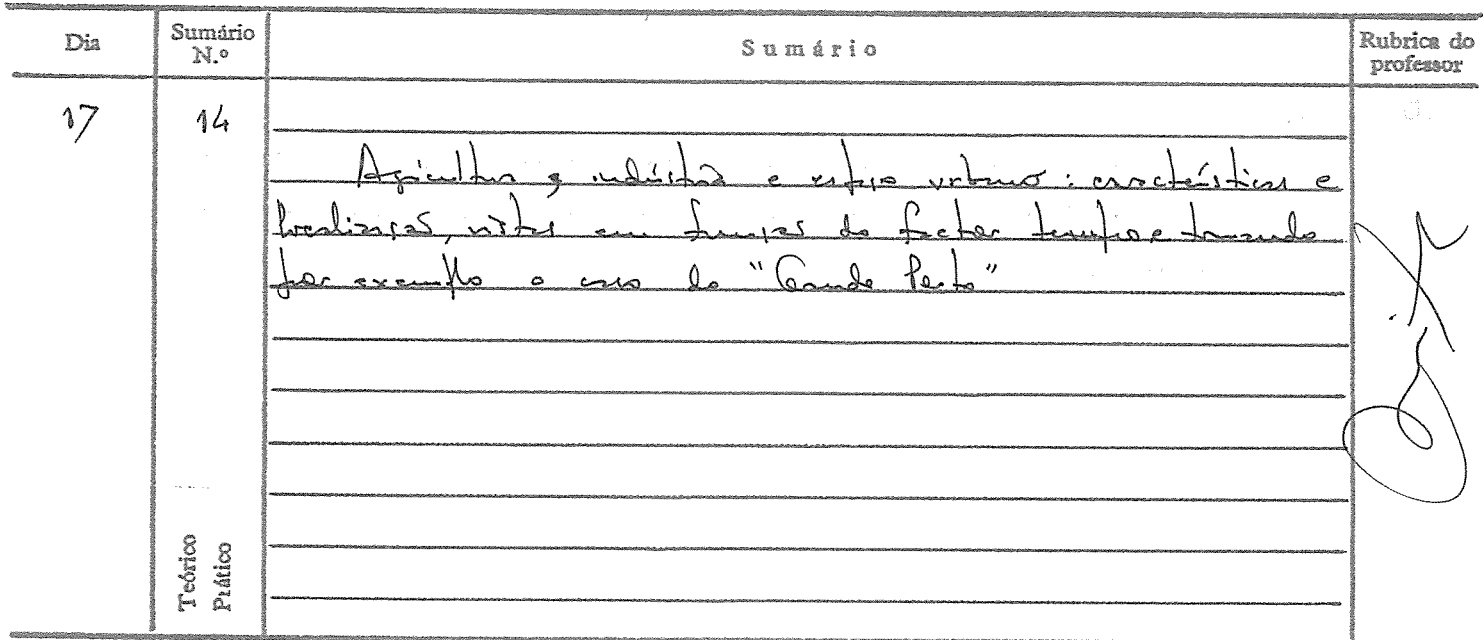 Dia
Sumário N.º
Sumário
Rubrica do professor
17
14
Agricultura, indústria e espaço urbano: características e
localização, vistas em função do factor tempo e tomando
por exemplo o caso do "Grande Porto"
Teórico
Prático